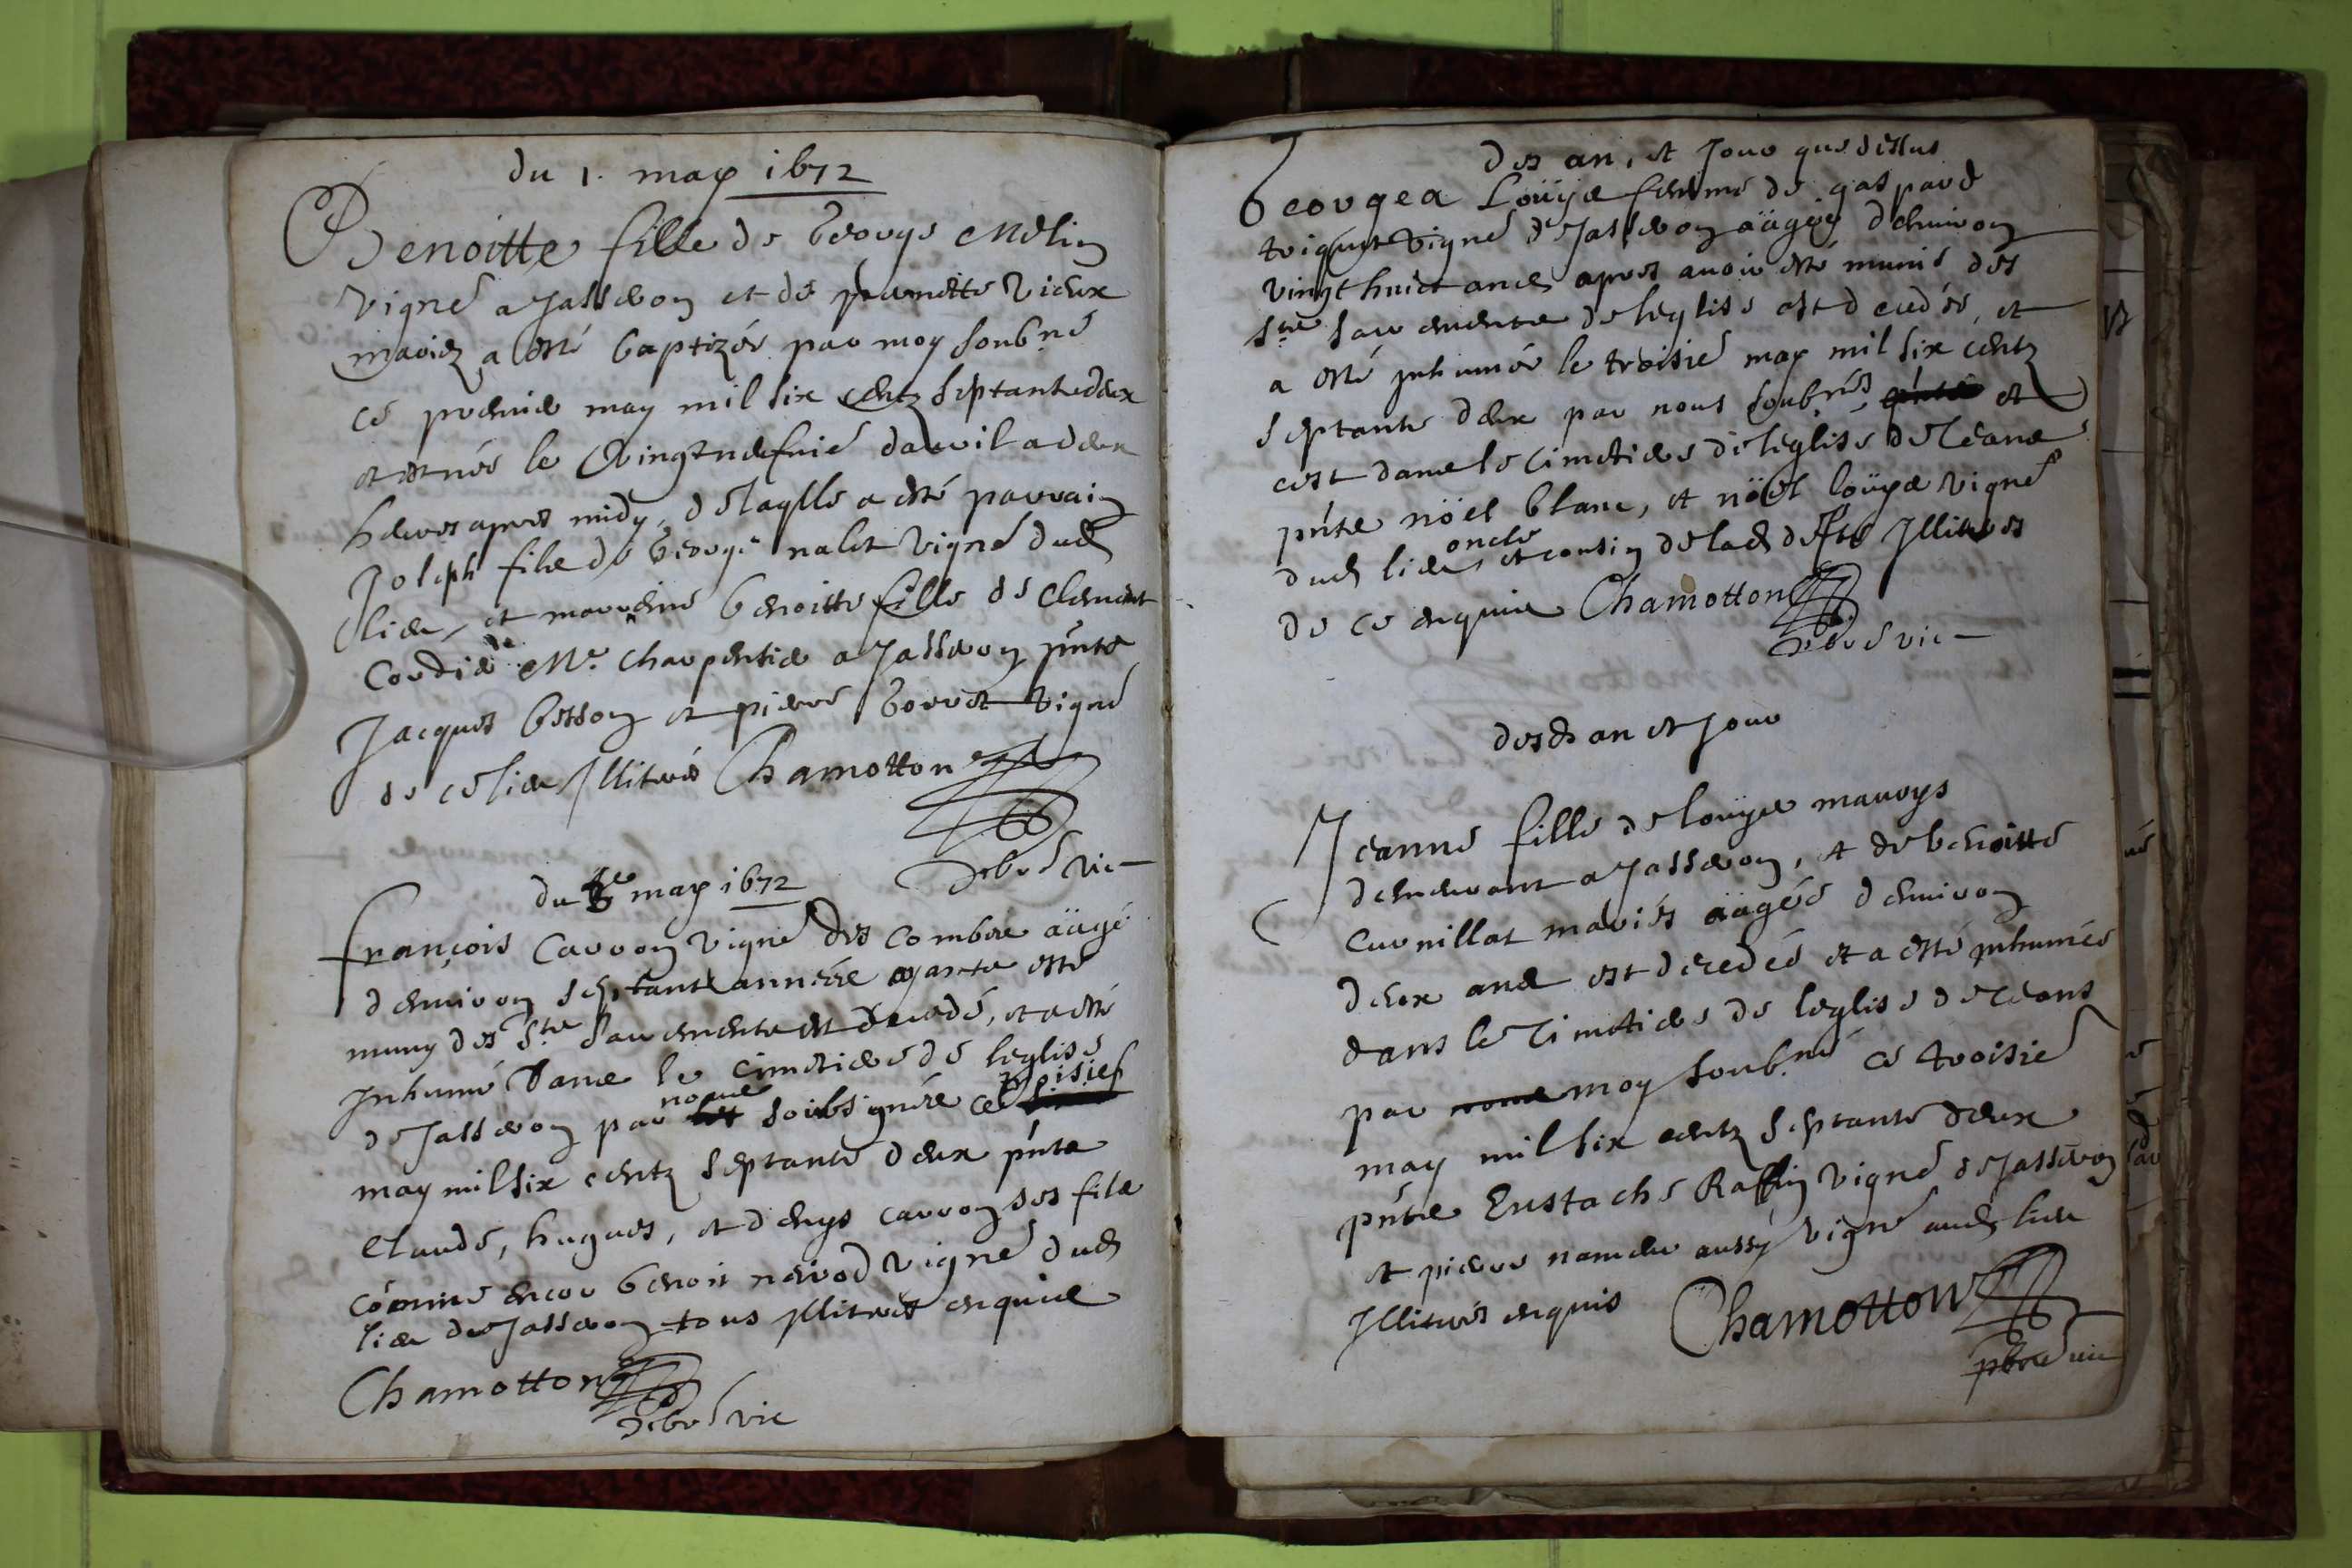 du 1. may 1672
Benoitte fille de George Melin
vigné a Jasseron et de pernette vieux
mariez a esté baptizée par moy soubné
ce premier may mil six centz septante deux
et est née le vingtneufvié davril a deux
heures apres midy, de laqlle a esté parrain
Joseph filz de George nalet vigné dud
lieu, et marreine benoitte fille de Clement
Cordier Me charpentier a Jasseron pnts
Jacques besson et pierre borret vigné
de ce lieu Illiterés Chamotton
pbre vic
du 3e may 1672
françois Carron vigné des combes äagé
denviron septante années ayant esté
muny des Sts Sacrements est decedé, et a esté
Inhumé dans le cimetiere de leglise
de Jasseron par nous soubsignés ce troisief
may mil six centz septante deux pnts
Claude, hugues, et denys carron ses filz
comme encor benoit neirod vigné dud
lieu de Jasseron tous Illiterés enquis
Chamotton
pbre vic
des an, et Jour que dessus
Georgea Loüys femme de gaspard
vigné de Jasseron äagée denviron
vingt huict ans apres avoir esté munie des
Sts Sacrements de leglise est decedée, et
a esté inhumée le troisié may mil six centz
septante deux par nous soubnés pnts et
cest dans le cimetiere de leglise de ceans
pnts nöel blanc, et nöel loüys vigné
dud lieu, oncle et cousin de lad deffte Illiterés
de ce enquis Chamotton
pbre vic
desd an et Jour
Jeanne fille de louys maurys
demeurant a Jasseron, et de benoitte
Curnillat mariés äagée denviron
deux ans est decedée et a esté inhumée
dans le cimetiere de leglise de ceans
par nous moy soubné ce troisié
may mil six centz septante deux
pnts Eustache Raffin vigné de Jasseron
et pierre nameur aussy vigné aud lieu
Illiterés enquis Chamotton
pbre vic